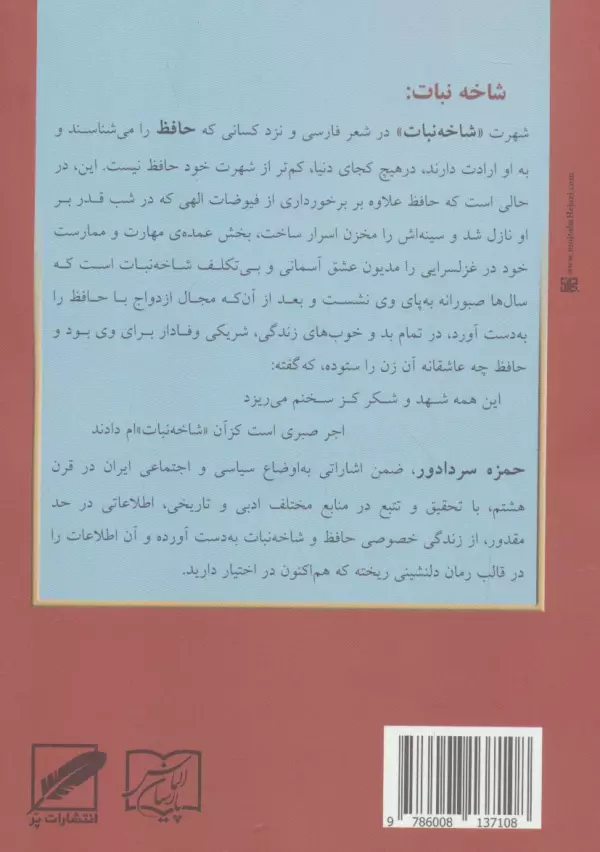 شاخه نبات:
شهرت «شاخه‌نبات» در شعر فارسی و نزد کسانی که حافظ را می‌شناسند و
به او ارادت دارند، درهیچ کجای دنیا، کم‌تر از شهرت خود حافظ نیست. این، در
حالی است که حافظ علاوه بر برخورداری از فیوضات الهی که در شب قدر بر
او نازل شد و سینه‌اش را مخزن اسرار ساخت، بخش عمده‌ی مهارت و ممارست
خود در غزلسرایی را مدیون عشق آسمانی و بی‌تکلف شاخه‌نبات است که
سال‌ها صبورانه به‌پای وی نشست و بعد از آن‌که مجال ازدواج با حافظ را
به‌دست آورد، در تمام بد و خوب‌های زندگی، شریکی وفادار برای وی بود و
حافظ چه عاشقانه آن زن را ستوده، که‌گفته:
این همه شهد و شکر کز سخنم می‌ریزد
اجر صبری است کزآن «شاخه‌نبات»ام دادند
حمزه سردادور، ضمن اشاراتی به‌اوضاع سیاسی و اجتماعی ایران در قرن
هشتم، با تحقیق و تتبع در منابع مختلف ادبی و تاریخی، اطلاعاتی در حد
مقدور، از زندگی خصوصی حافظ و شاخه‌نبات به‌دست آورده و آن اطلاعات را
در قالب رمان دلنشینی ریخته که هم‌اکنون در اختیار دارید.
انتشارات پَر
الماس پارسیان
9 786008 137108